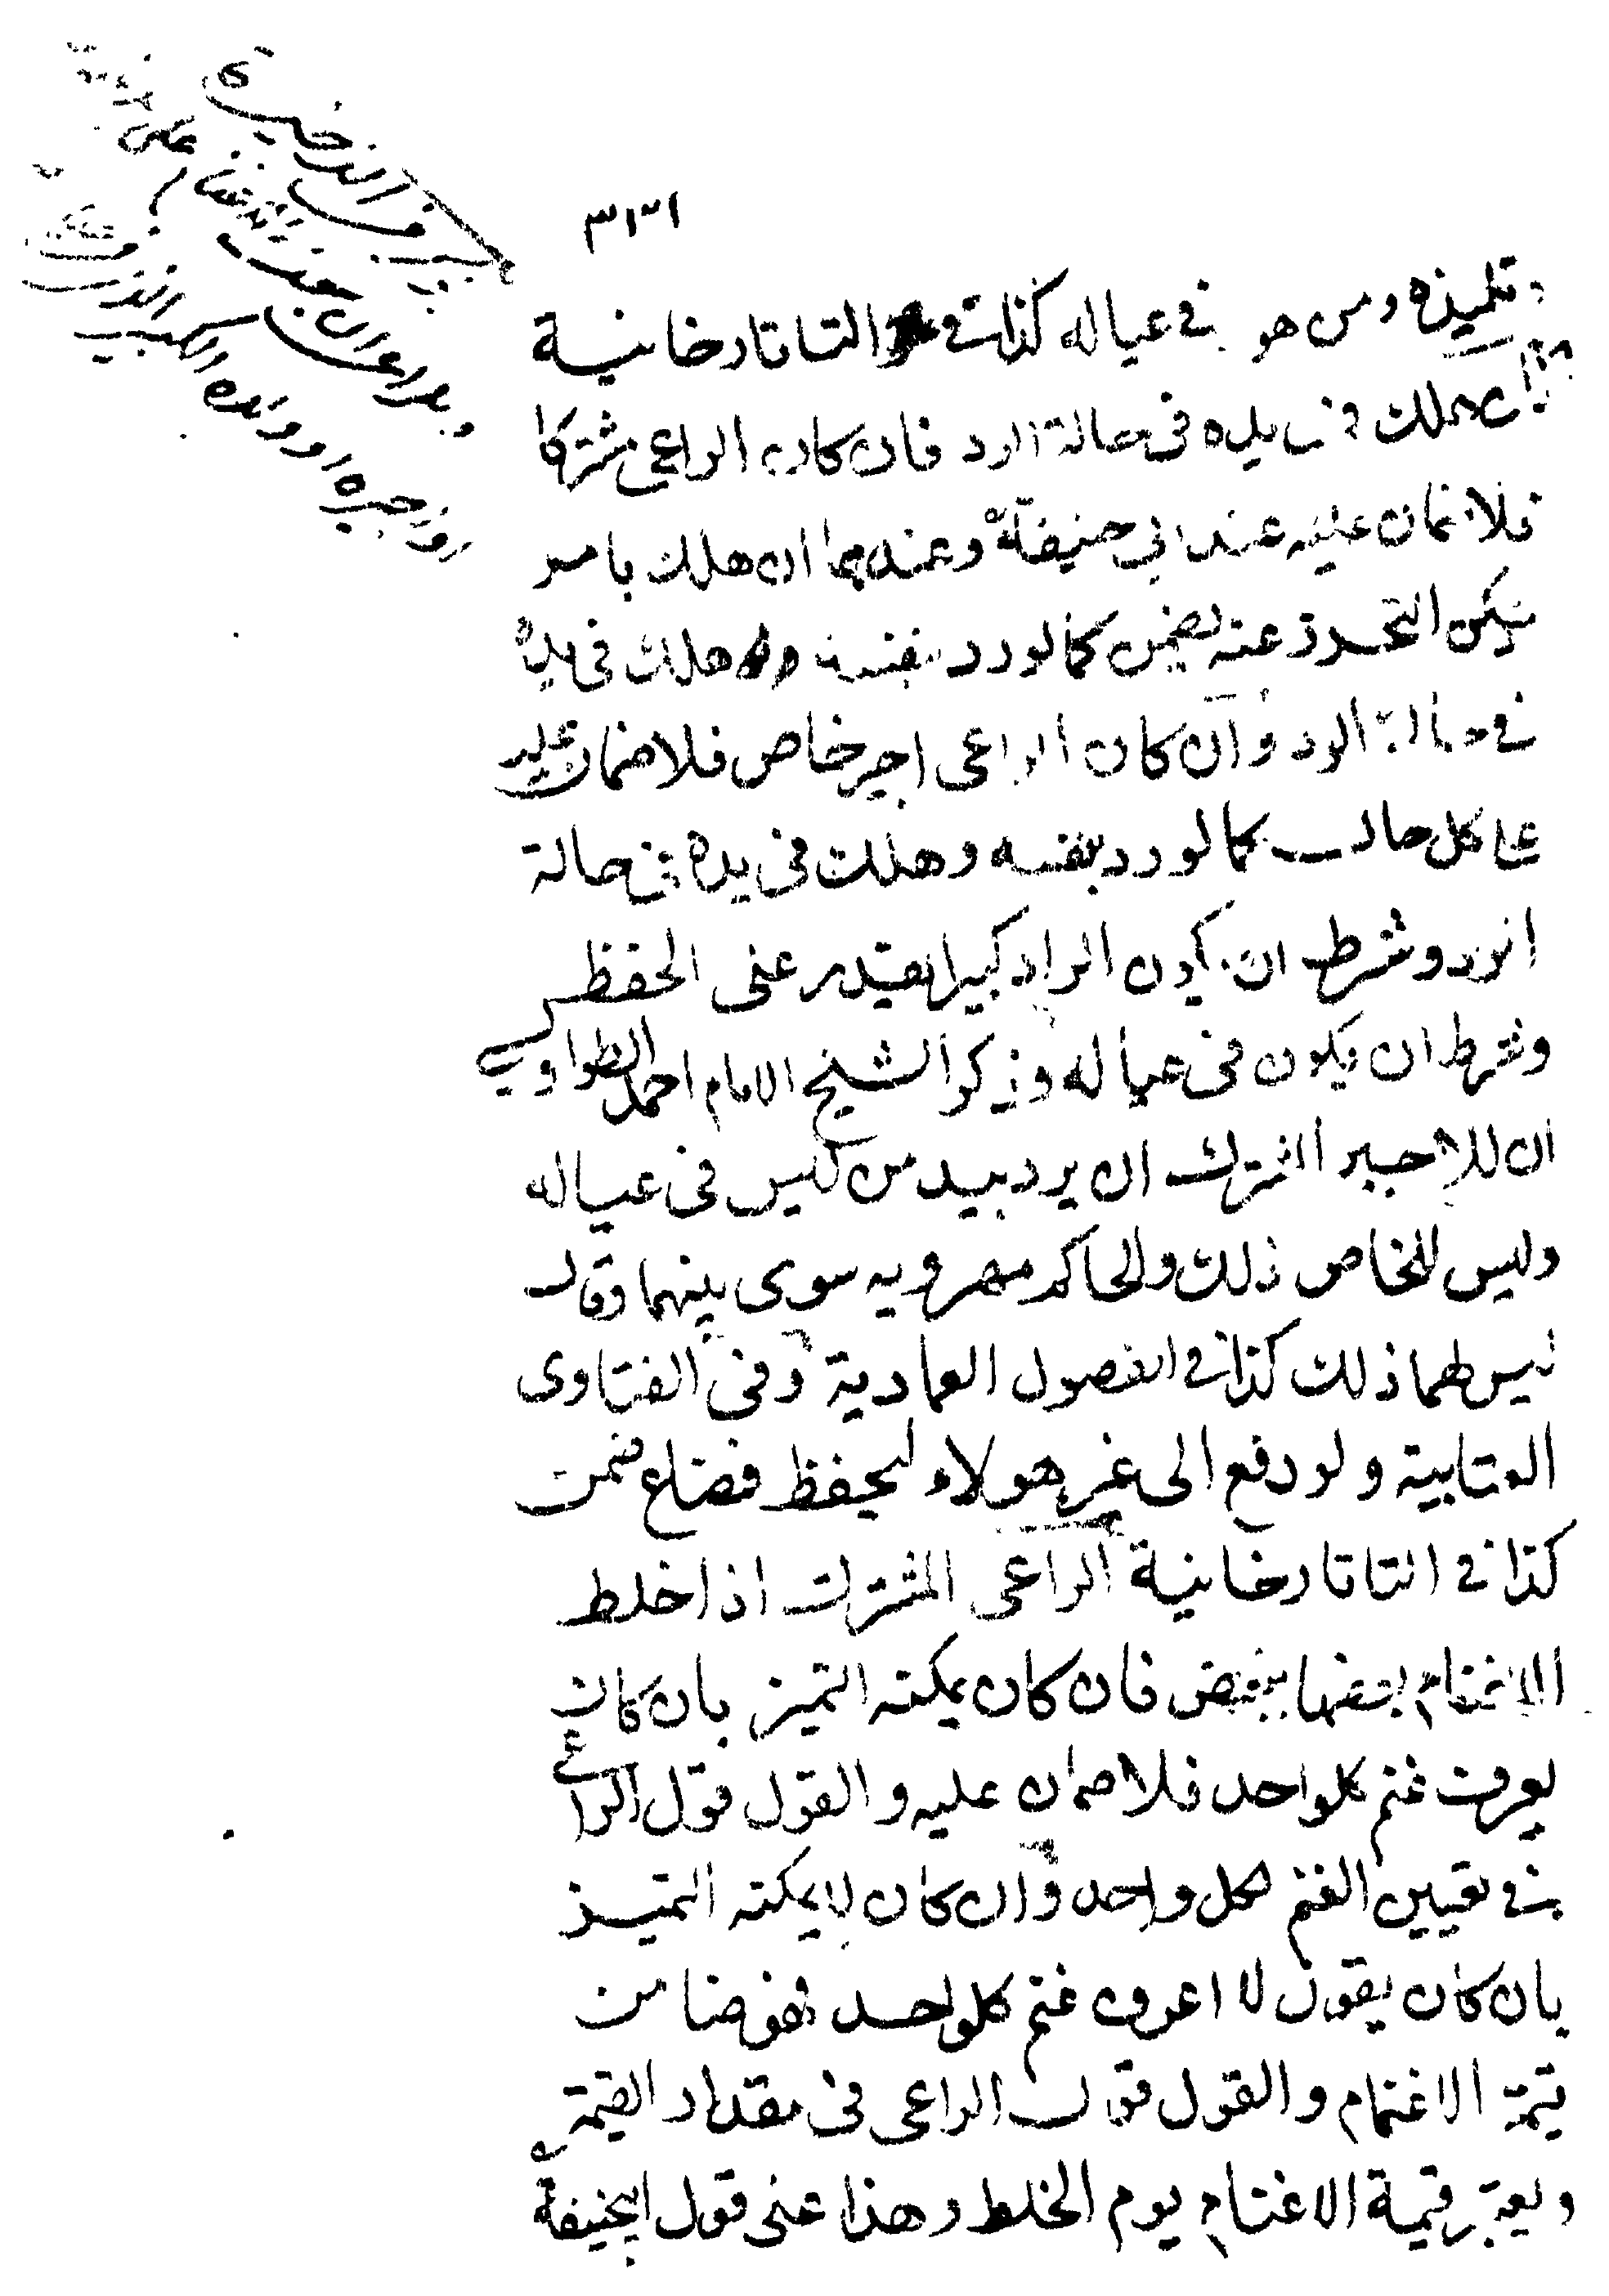 ٣١٣١
وتلميذه ومن هو في عياله كذا في التاتارخانية
هلك في يده في حالة الرد فان كان الراعى مشتركا
فلا ضمان عليه عند ابي حنيفة وعندهما ان هلك بامر
يمكن التحرز عنه يضمن كما لو رد بنفسه وهلك في يده
في حالة الرد وان كان الراعى اجير خاص فلا ضمان عليه
على كل حال كما لو رد بنفسه وهلك في يده في حالة
الرد وشرط ان يكون الراد كبيرا يقدر على الحفظ
وشرط ان يكون في عياله وذكر الشيخ الامام احمد الطواويسي
ان للاجير المشترك ان يرد بيد من ليس في عياله
وليس للخاص ذلك والحاكم مهرويه سوى بينهما وقال
ليس لهما ذلك كذا في الفصول العمادية وفي الفتاوى
العتابية ولو دفع الى غير هولاء ليحفظ فضاع ضمن
كذا في التاتارخانية الراعى المشترك اذا خلط
الاغنام بعضها ببعض فان كان يمكنه التميز بان كان
يعرف غنم كلواحد فلا ضمان عليه والقول قول الراعى
في تعيين الغنم لكل واحد وان كان لا يمكنه التميز
بان كان يقول لا اعرف غنم كلواحد فهو ضامن
قيمة الاغنام والقول قول الراعى في مقدار القيمة
ويعتبر قيمة الاغنام يوم الخلط وهذا على قول ابيحنيفة